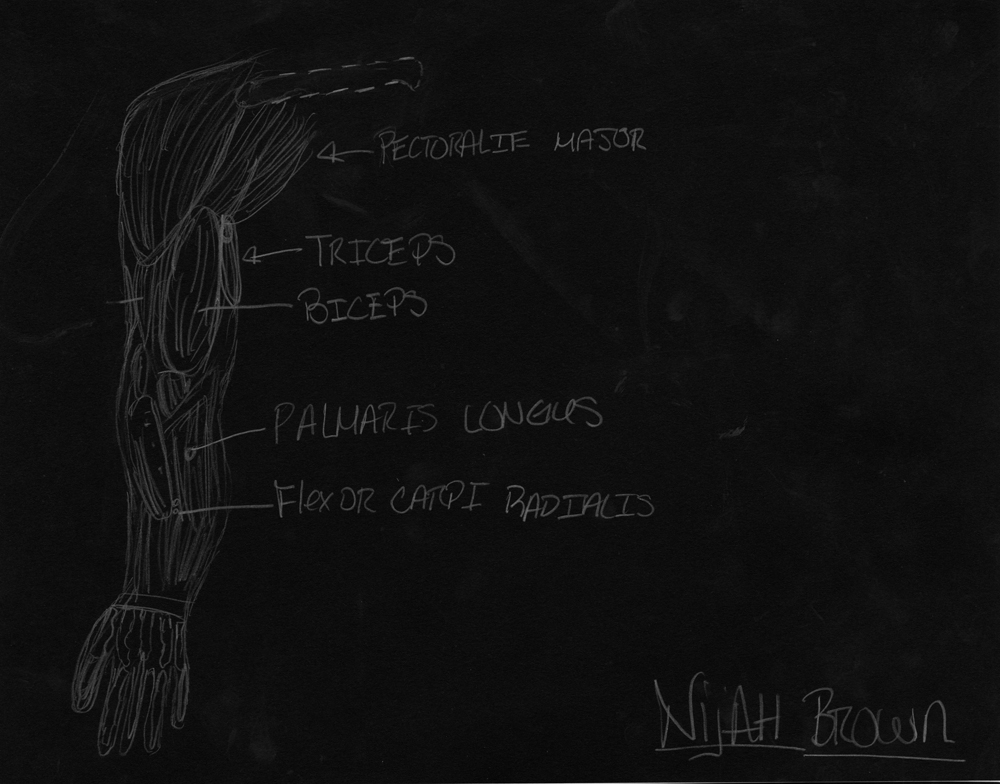 PECTORALIE MAJOR
TRICEPS
BICEPS
PALMARIS LONGUS
FlexOR CATPI RADIALIS
NijAH BROWN